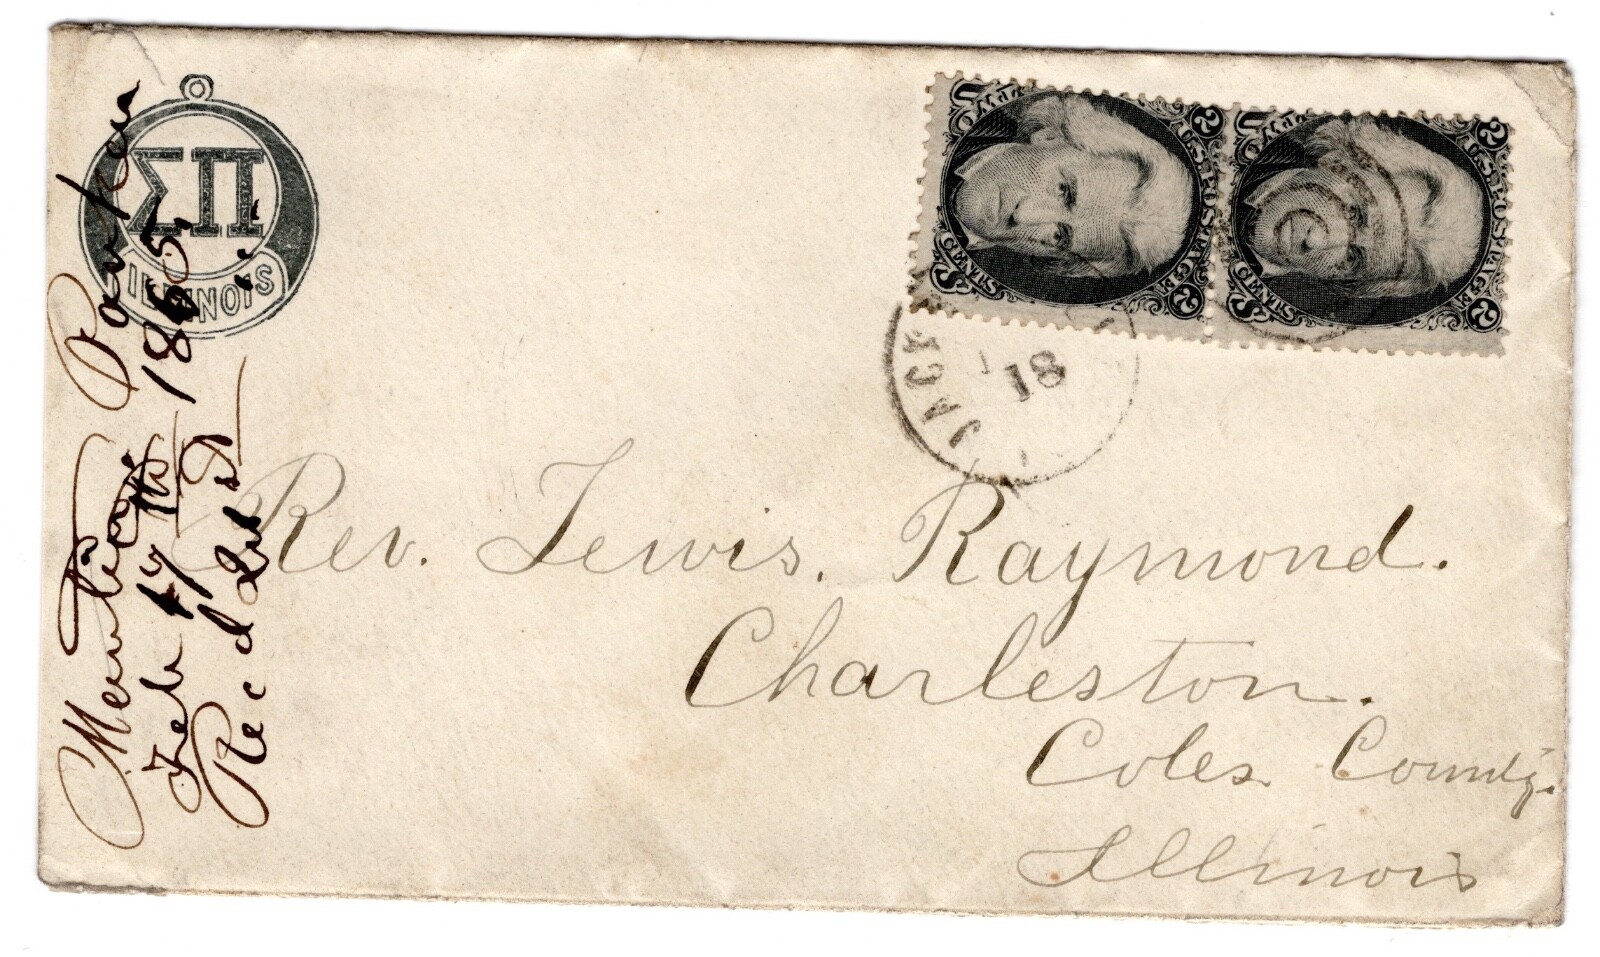 ΣΠ
ILLINOIS
Parker
Feb 17th 1865
Recd 21st
U 2
U.S. POSTAGE
CENTS 2
U 2
U.S. POSTAGE
CENTS 2
JACK
18
Rev. Lewis. Raymond.
Charleston.
Coles County.
Illinois